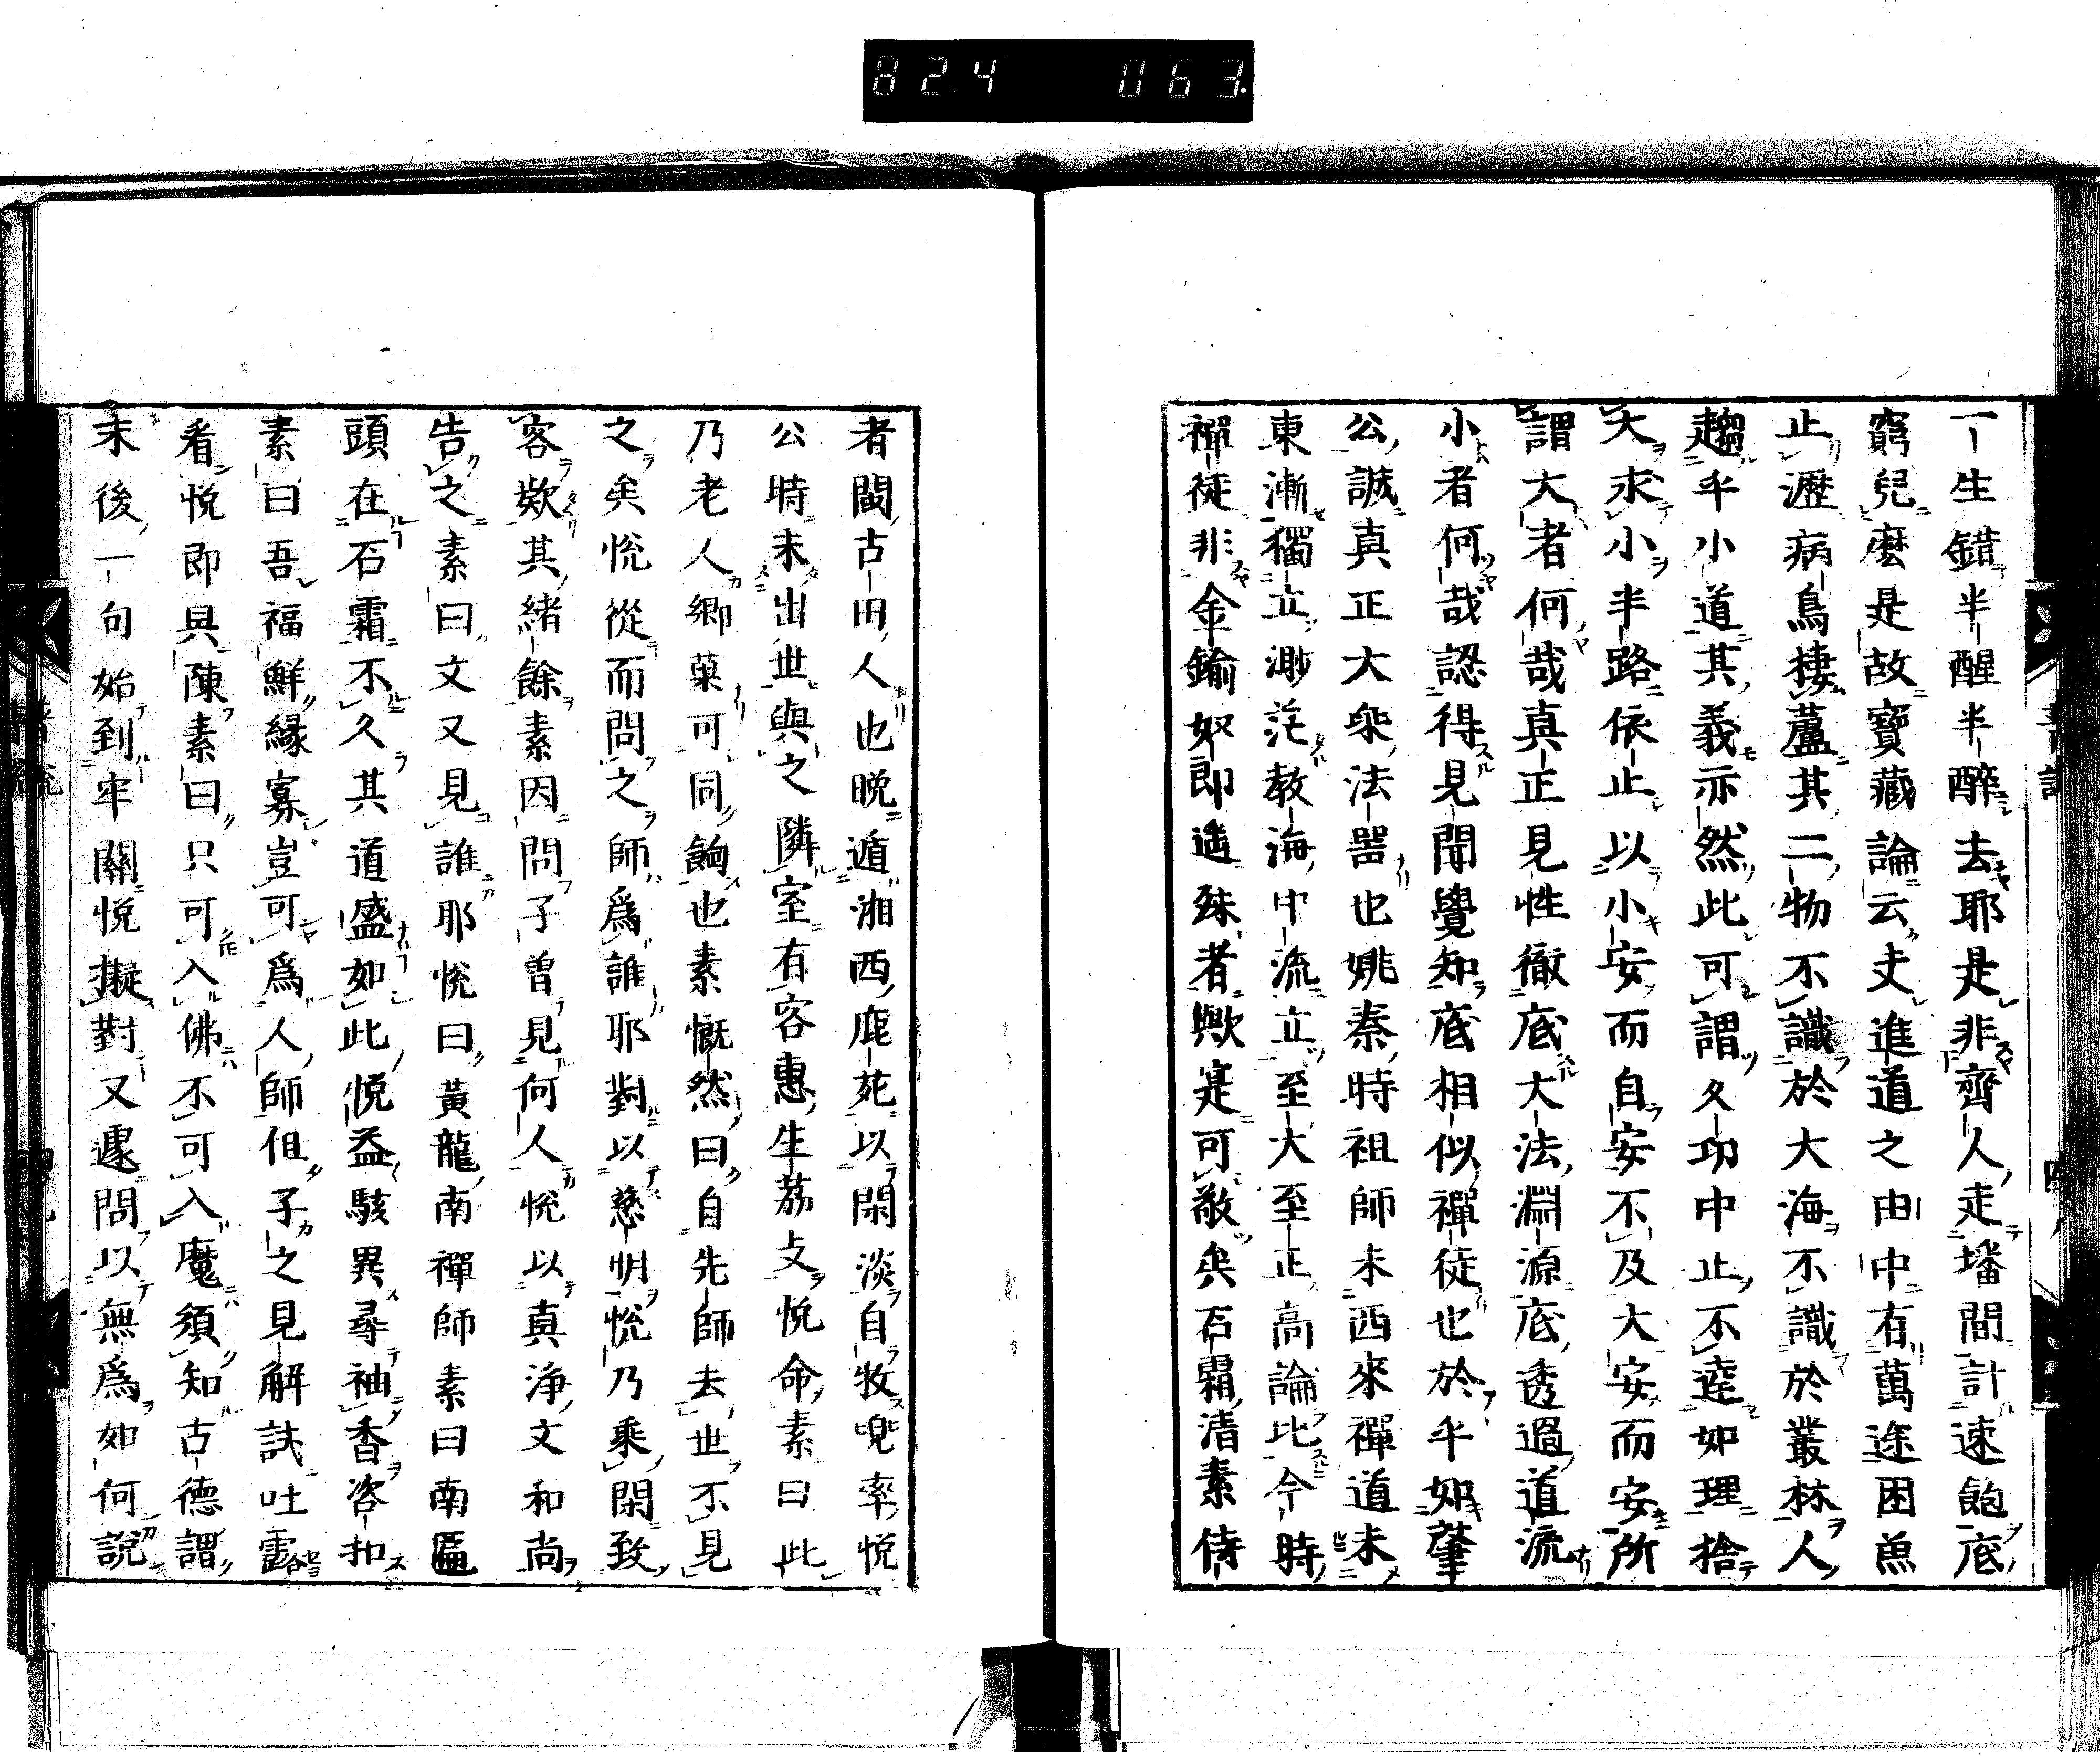 82.4 063
一生錯半醒半醉去耶是非齊人走墦間計速飽底
窮兒麼是故寶藏論云夫進道之由中有萬途困魚
止瀝病鳥棲蘆其二物不識於大海不識於叢林人
趨乎小道其義亦然此可謂久功中止不達如理捨
大求小半路依止以小安而自安不及大安而安所
謂大者何哉真正見性徹底大法淵源底透過道流
小者何哉認得見聞覺知底相似禪徒也於乎如肇
公誠真正大乘法器也姚秦時祖師未西來禪道未
東漸獨立渺茫教海中流立至大至正高論比今時
禪徒非金鍮奴郎遙殊者歟寔可敬矣石霜清素侍
者閩古田人也晩遁湘西鹿苑以閑淡自牧兜率悅
公時未出世與之隣室有客惠生荔支悅命素曰此
乃老人鄉菓可同餉也素慨然曰自先師去世不見
之矣悅從而問之師爲誰耶對以慈明悅乃乘閑致
客欵其緒餘素因問子曾見何人悅以真淨文和尚
告之素曰文又見誰耶悅曰黃龍南禪師素曰南匾
頭在石霜不久其道盛如此悅益駭異尋袖香咨扣
素曰吾福鮮縁寡豈可爲人師但子之見解試吐露
看悅即具陳素曰只可入佛不可入魔須知古德謂
末後一句始到牢關悅擬對又遽問以無爲如何說